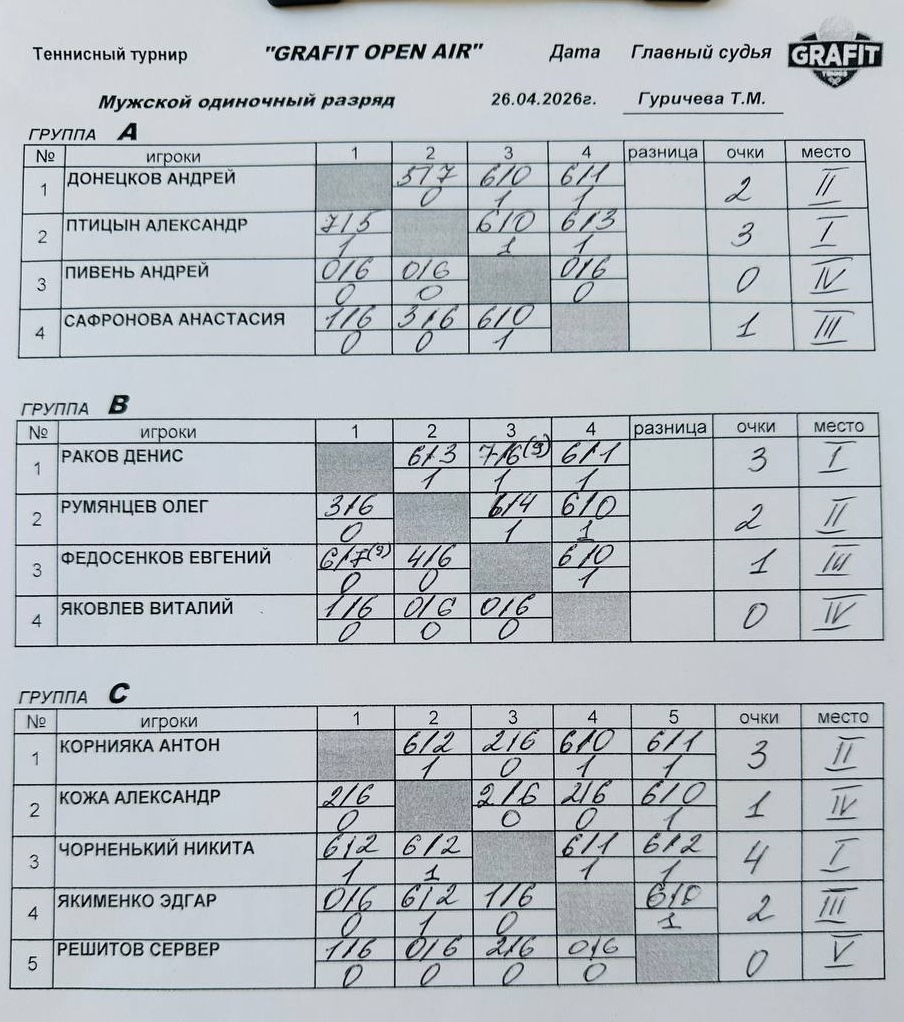 Теннисный турнир "GRAFIT OPEN AIR" Дата Главный судья GRAFIT
TENNIS
Мужской одиночный разряд 26.04.2026г. Гуричева Т.М.
ГРУППА A
№ игроки 1 2 3 4 разница очки место
1 ДОНЕЦКОВ АНДРЕЙ 5/7 6/0 6/1 2 II
0 1 1
2 ПТИЦЫН АЛЕКСАНДР 7/5 6/0 6/3 3 I
1 1 1
3 ПИВЕНЬ АНДРЕЙ 0/6 0/6 0/6 0 IV
0 0 0
4 САФРОНОВА АНАСТАСИЯ 1/6 3/6 6/0 1 III
0 0 1
ГРУППА B
№ игроки 1 2 3 4 разница очки место
1 РАКОВ ДЕНИС 6/3 7/6(9) 6/1 3 I
1 1 1
2 РУМЯНЦЕВ ОЛЕГ 3/6 6/4 6/0 2 II
0 1 1
3 ФЕДОСЕНКОВ ЕВГЕНИЙ 6/7(9) 4/6 6/0 1 III
0 0 1
4 ЯКОВЛЕВ ВИТАЛИЙ 1/6 0/6 0/6 0 IV
0 0 0
ГРУППА C
№ игроки 1 2 3 4 5 очки место
1 КОРНИЯКА АНТОН 6/2 2/6 6/0 6/1 3 II
1 0 1 1
2 КОЖА АЛЕКСАНДР 2/6 2/6 2/6 6/0 1 IV
0 0 0 1
3 ЧОРНЕНЬКИЙ НИКИТА 6/2 6/2 6/1 6/2 4 I
1 1 1 1
4 ЯКИМЕНКО ЭДГАР 0/6 6/2 1/6 6/0 2 III
0 1 0 1
5 РЕШИТОВ СЕРВЕР 1/6 0/6 2/6 0/6 0 V
0 0 0 0